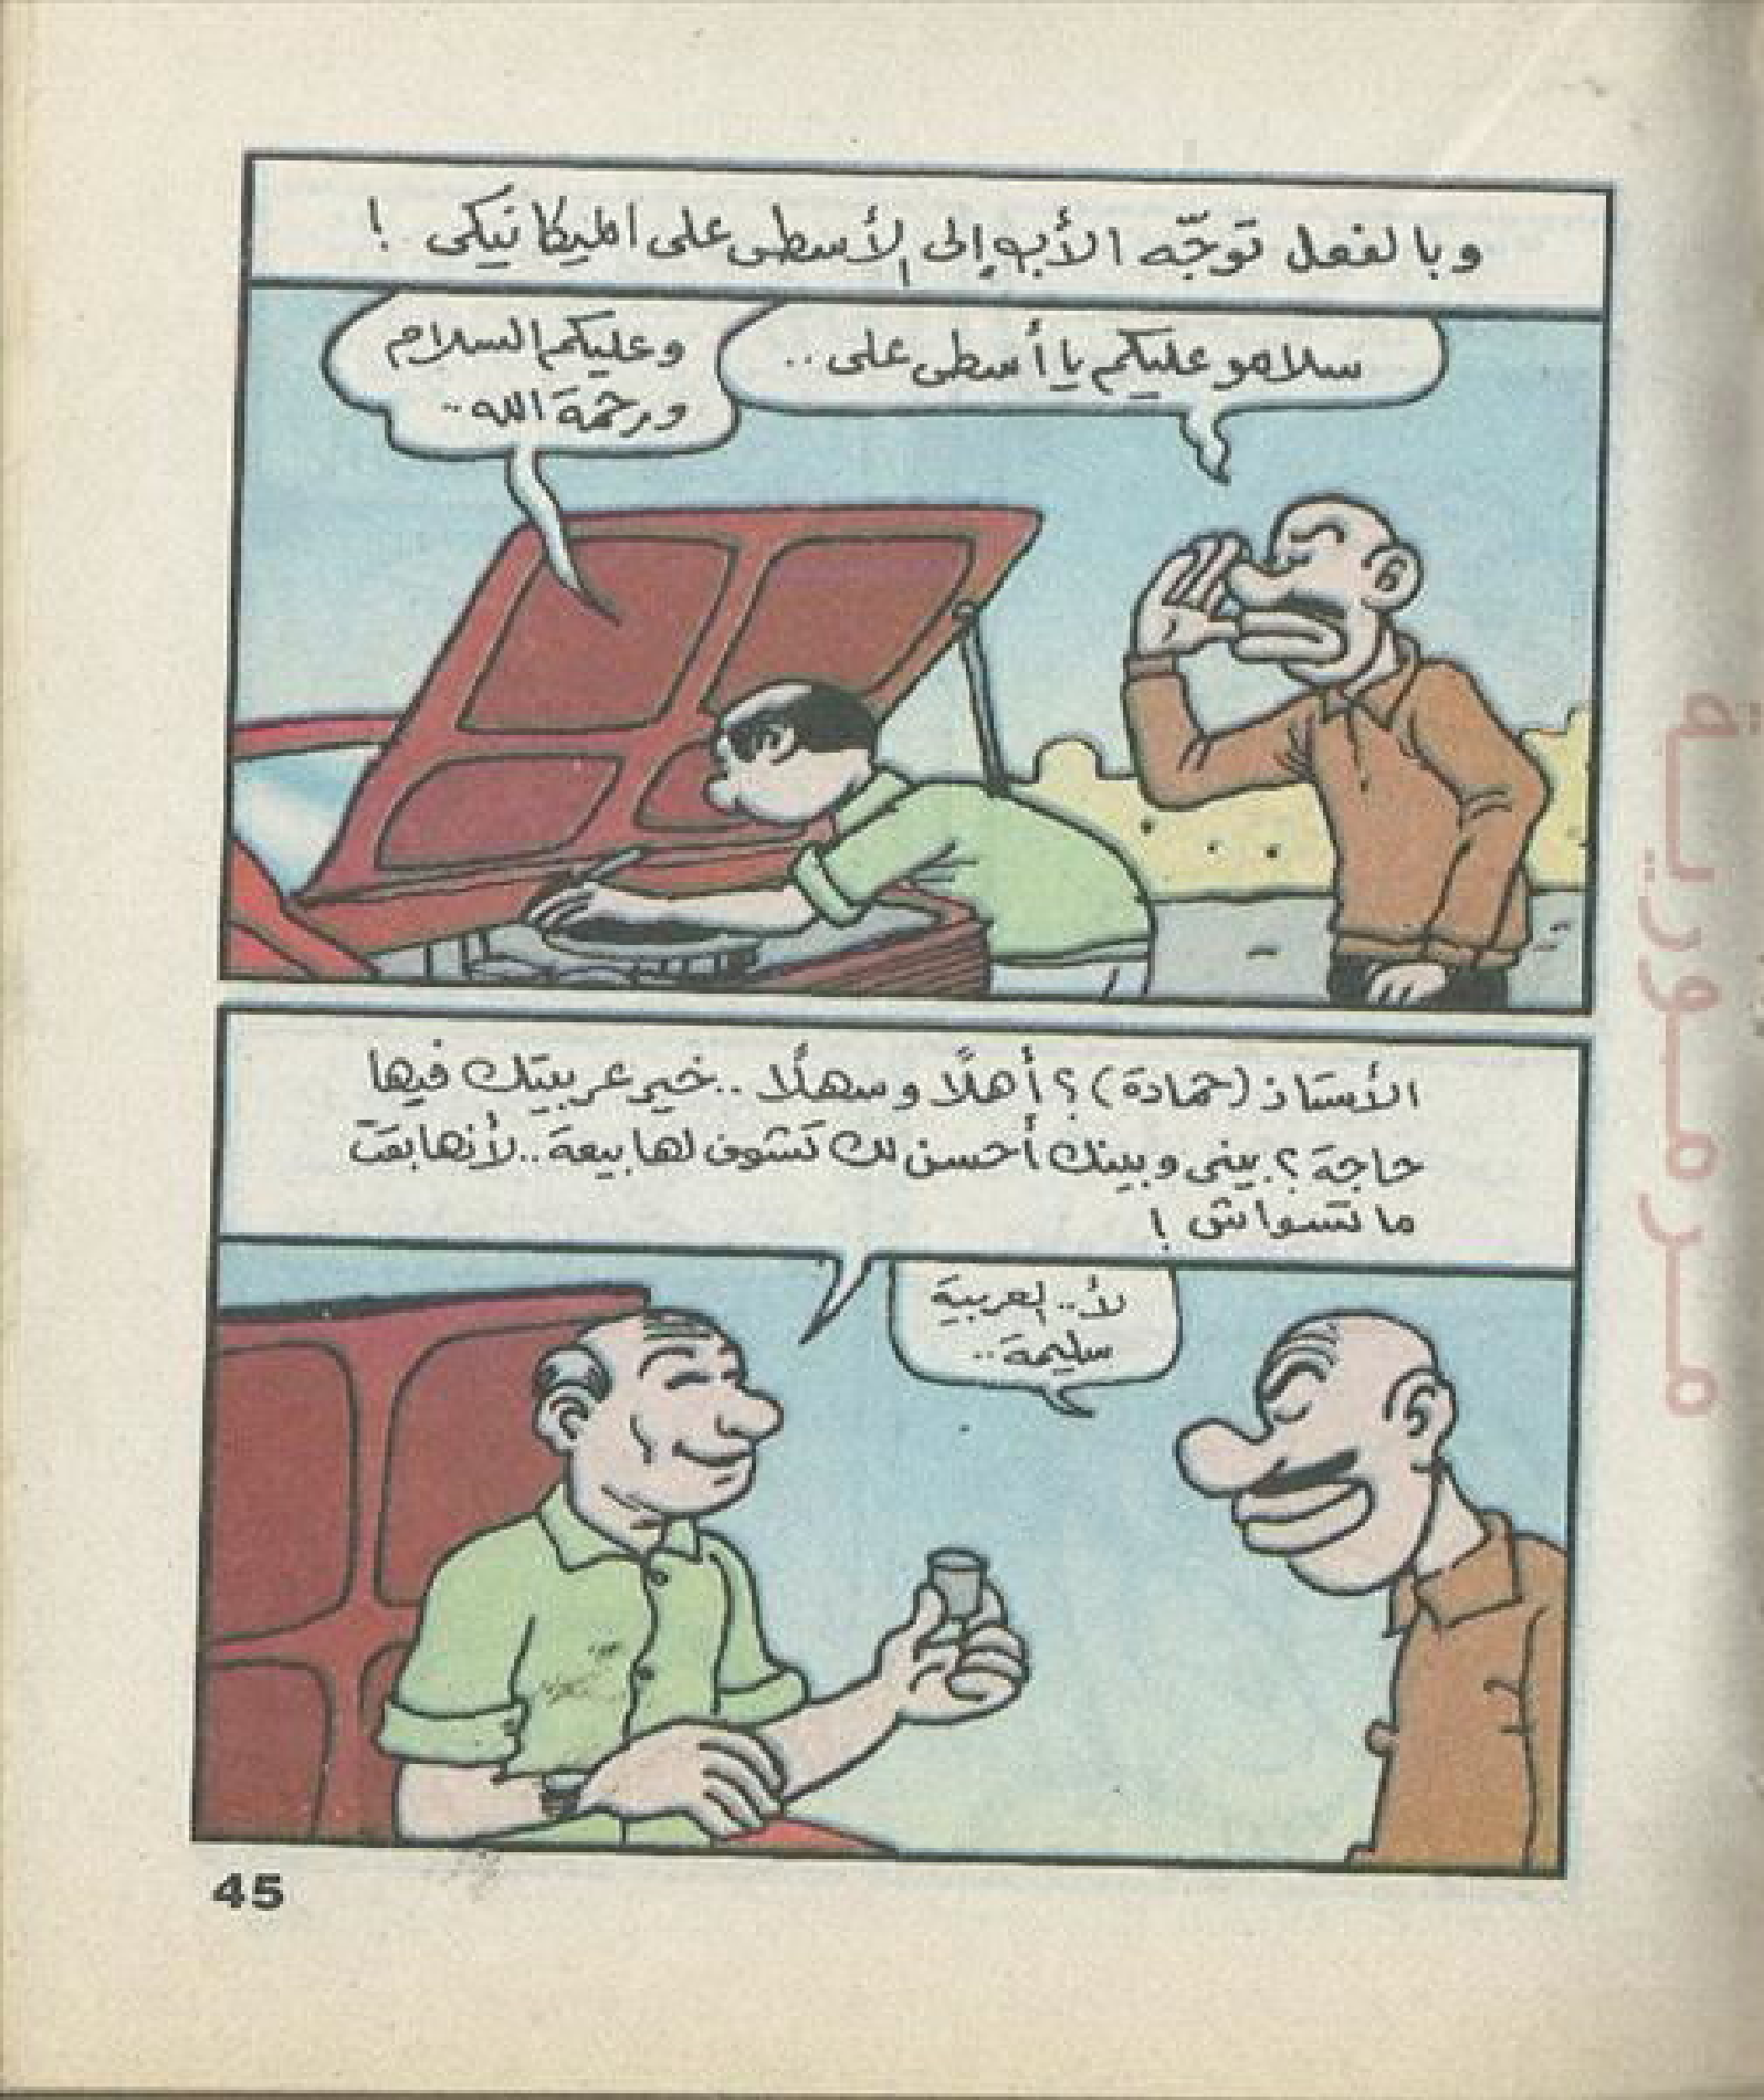 وبالفعل توجّه الأب إلى الأسطى على الميكانيكى !
سلامو عليكم يا أسطى على ..
وعليكم السلام
ورحمة الله ..
الأستاذ (حمادة) ؟ أهلًا وسهلًا .. خير عربيتك فيها
حاجة ؟ بينى وبينك أحسن لك تشوف لها بيعة .. لأنها بقت
ما تسواش !
لأ .. العربية
سليمة ..
45
مرمورية